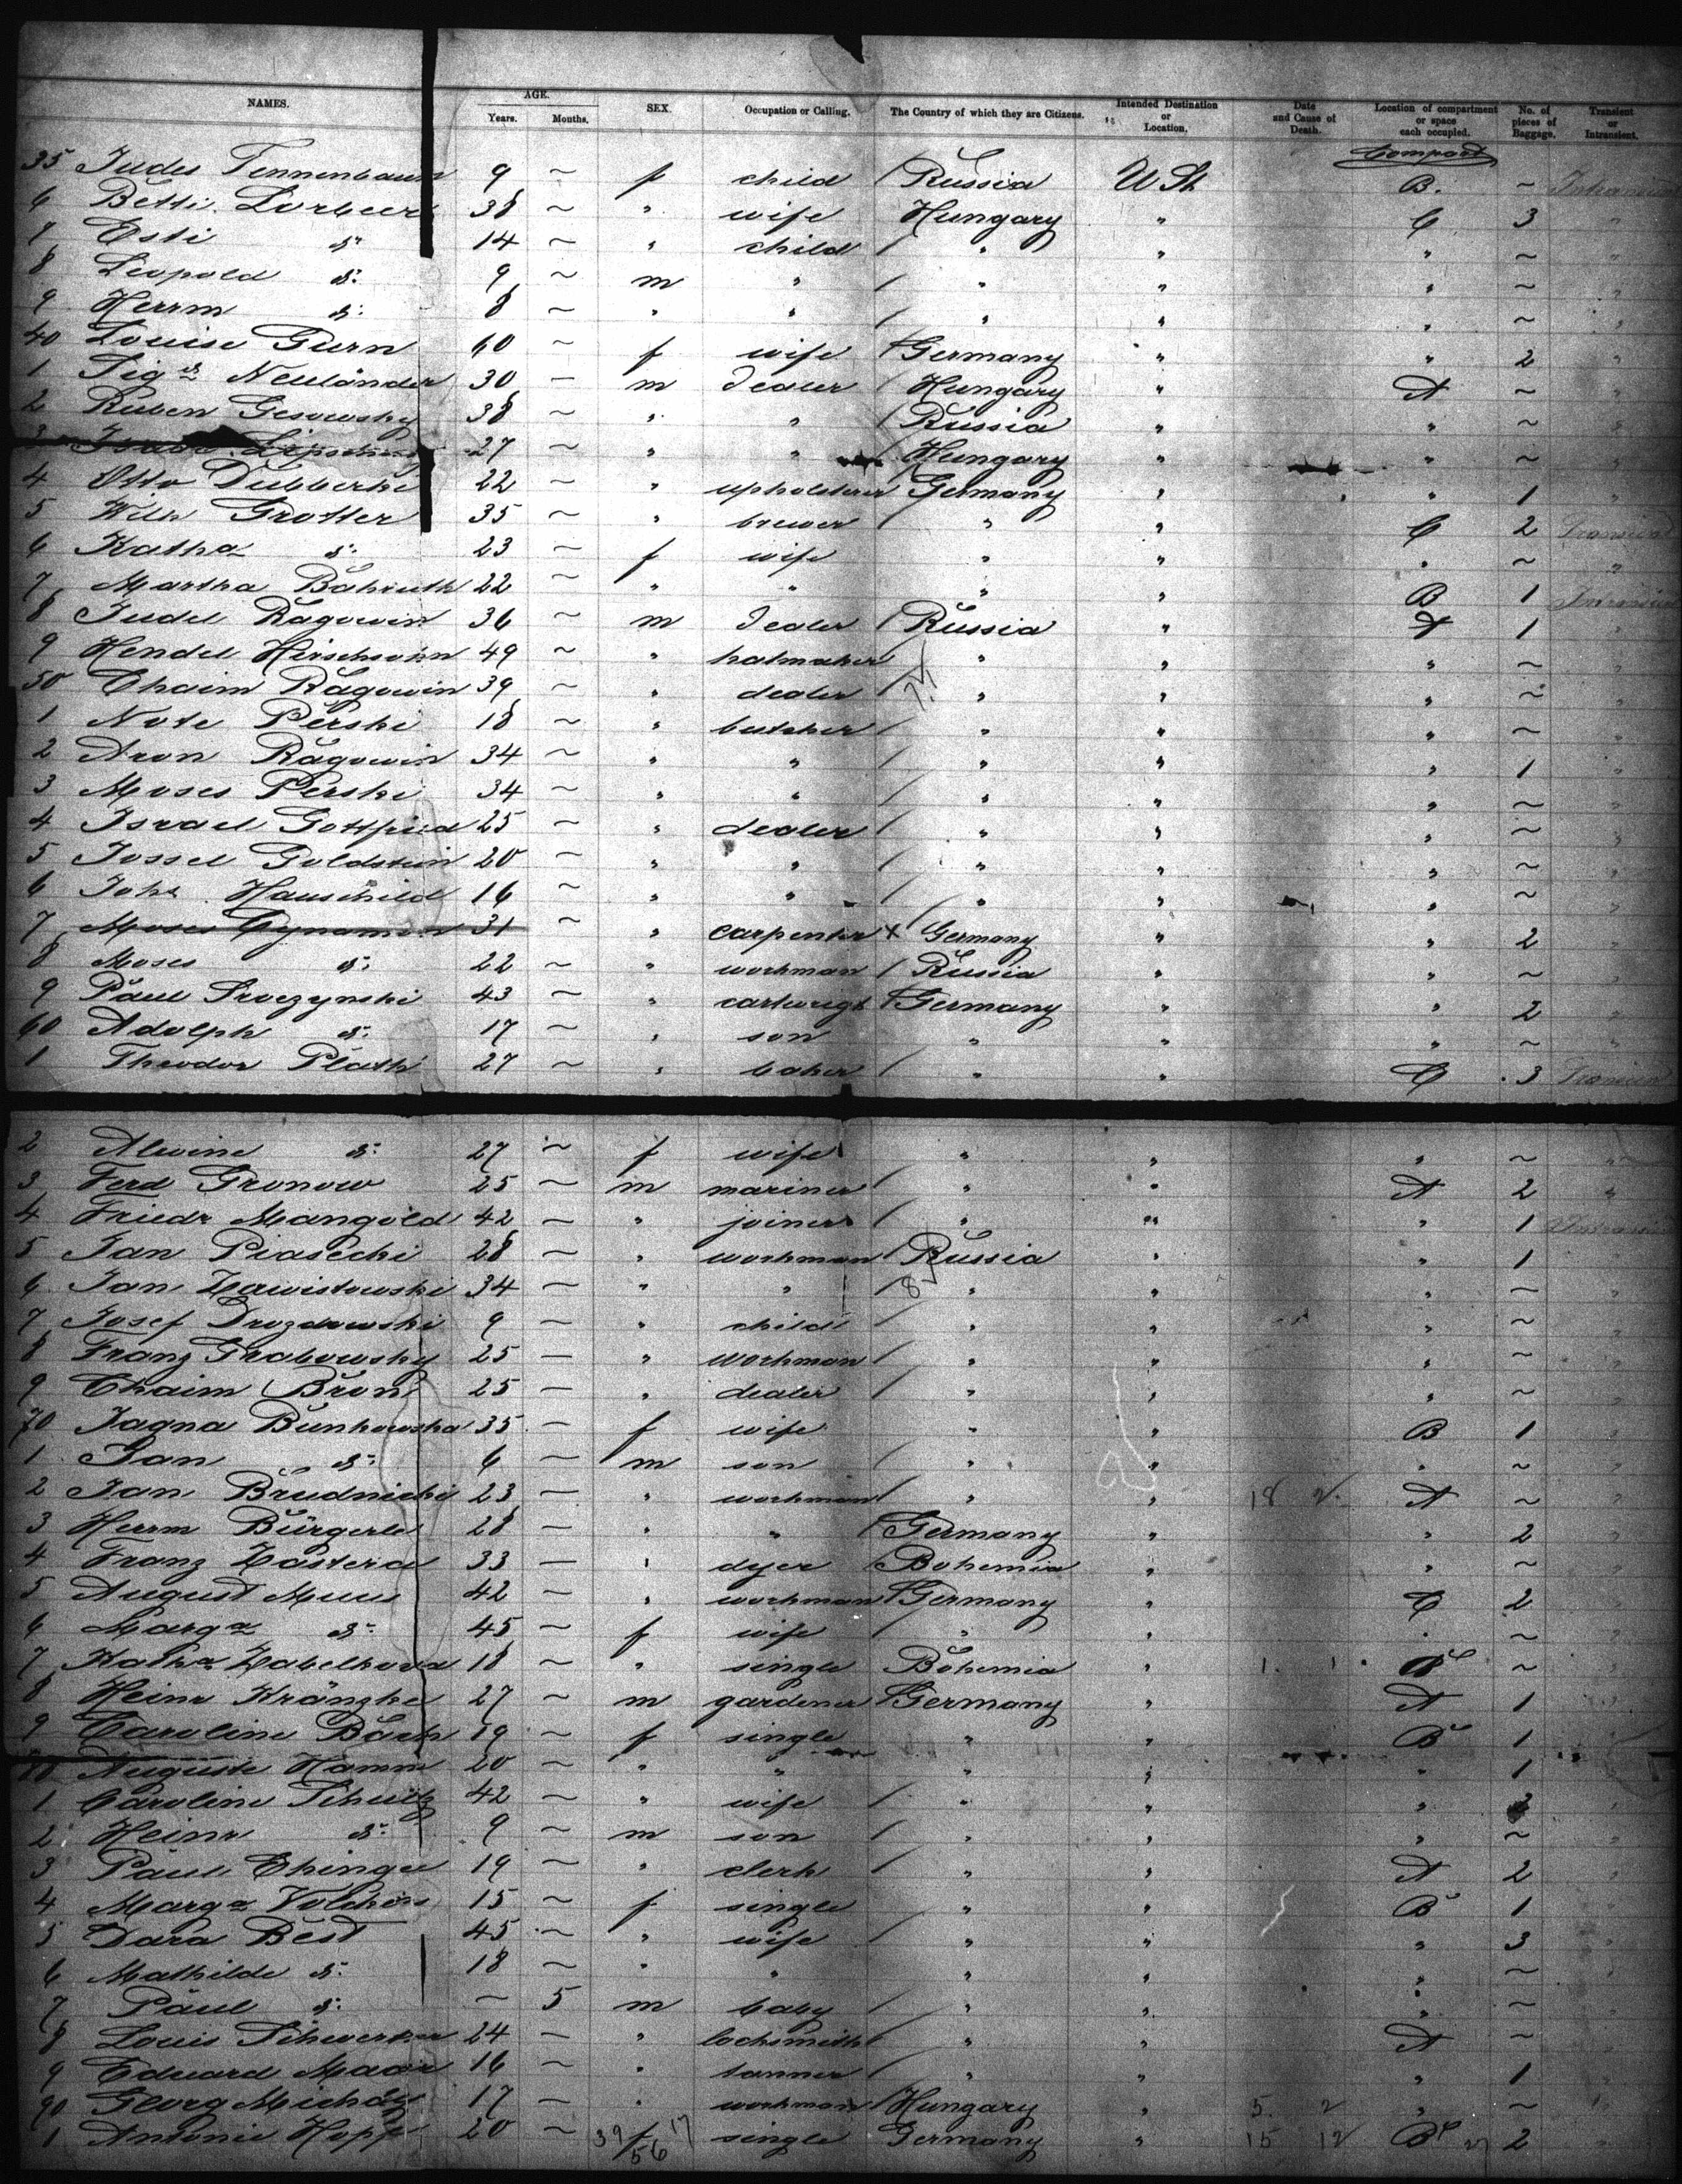 NAMES. AGE. Years. Months. SEX. Occupation or Calling. The Country of which they are Citizens. Intended Destination or Location. Date and Cause of Death. Location of compartment or space each occupied. No. of pieces of Baggage. Transient or Intransient.
Compart
35 Judes Tennenbaum 9 ~ f child / Russia U St B. ~
6 Betti Lorbeer 38 ~ " wife Hungary " C 3 "
7 Esti d° 14 ~ " child / " " " ~ "
8 Leopold d° 9 ~ m " / " " " ~ "
9 Herrm d° 8 ~ " " / " " " ~ "
40 Louise Gurn 60 ~ f wife Germany " " 2 "
1 Sigd Neuländer 30 — m dealer / Hungary " A ~ "
2 Ruben Gesowsky 38 ~ " " / Russia " " ~ "
3 27 ~ " " / Hungary " " ~ "
4 Otto Dubberke 22 ~ " upholsterer Germany " " 1 "
5 Wilh Grotter 35 ~ " brewer " " C 2 Transient
6 Katha d° 23 ~ f wife " " " ~ "
7 Martha Bahruth 22 ~ " " " " B 1 Intransient
8 Judel Ragowin 36 ~ m dealer / Russia " A 1 "
9 Hendel Hirschsohn 49 ~ " hatmaker / " " " ~ "
50 Chaim Ragowin 39 ~ " dealer / " " " ~ "
1 Note Perski 18 ~ " butcher / " " " ~ "
2 Aron Ragowin 34 ~ " " / " " " 1 "
3 Moses Perski 34 ~ " " / " " " ~ "
4 Israel Gottfried 25 ~ " dealer / " " " ~ "
5 Jossel Goldstein 20 ~ " " / " " " ~ "
6 Johs Hauschild 16 ~ " " / " " " ~ "
7 Moses Cynamon 31 " carpenter x Germany " " 2 "
8 Moses d° 22 ~ " workman / Russia " " ~ "
9 Paul Sroczynski 43 ~ " cartwrigt Germany " " 2 "
60 Adolph d° 17 ~ " son " " " ~ "
1 Theodor Plath 27 ~ " baker / " " C 3 Transient
2 Alwine d° 27 ~ f wife " " " ~ "
3 Ferd Gronow 25 ~ m mariner / " " A 2 "
4 Friedr Mangold 42 ~ " joiner / " " " 1 Intransient
5 Jan Piasecki 28 ~ " workman / Russia " " 1 "
6 Jan Zawistowski 34 ~ " " / " " " ~ "
7 Josef Drozdowski 9 ~ " child / " " " ~ "
8 Franz Grabowsky 25 — " workman / " " " ~ "
9 Chaim Bron 25 — " dealer / " " " ~ "
70 Jagna Bunkowska 35 — f wife " " B 1 "
1 Jan d° 6 — m son / " " " ~ "
2 Jan Brudnicki 23 ~ " workman / " " 18 2 A ~ "
3 Herm Bürgerle 28 — " " / Germany " " 2 "
4 Franz Zastera 33 — " dyer / Bohemia " " ~ "
5 August Muus 42 ~ " workman Germany " C 2 "
6 Marga d° 45 ~ f wife / " " " ~ "
7 Katha 18 ~ " single Bohemia " B ~ "
8 Heinr Kränzke 27 ~ m gardener Germany " A 1 "
9 Caroline Bach 19 ~ f single " " B 1 "
80 Auguste Hamm 20 ~ " " " " " 1 "
1 Caroline Schultz 42 ~ " wife / " " "
2 Heinr d° 9 ~ m son / " " " ~ "
3 Paul Ehinger 19 ~ " clerk / " " A 2 "
4 Marga 15 ~ f single " " B 1 "
5 Dara Best 45 ~ " wife " " " 3 "
6 Mathilde d° 18 ~ " " " " " ~ "
7 Paul d° ~ 5 m baby / " " " ~ "
8 Louis 24 ~ " locksmith / " " A ~ "
9 Eduard Maar 16 ~ " tanner / " " " 1 "
90 Georg Michaly 17 ~ " workman / Hungary " 5 2 " ~ "
1 Antonie Hopf 20 ~ 39 f 17 56 single Germany " 15 12 B 2